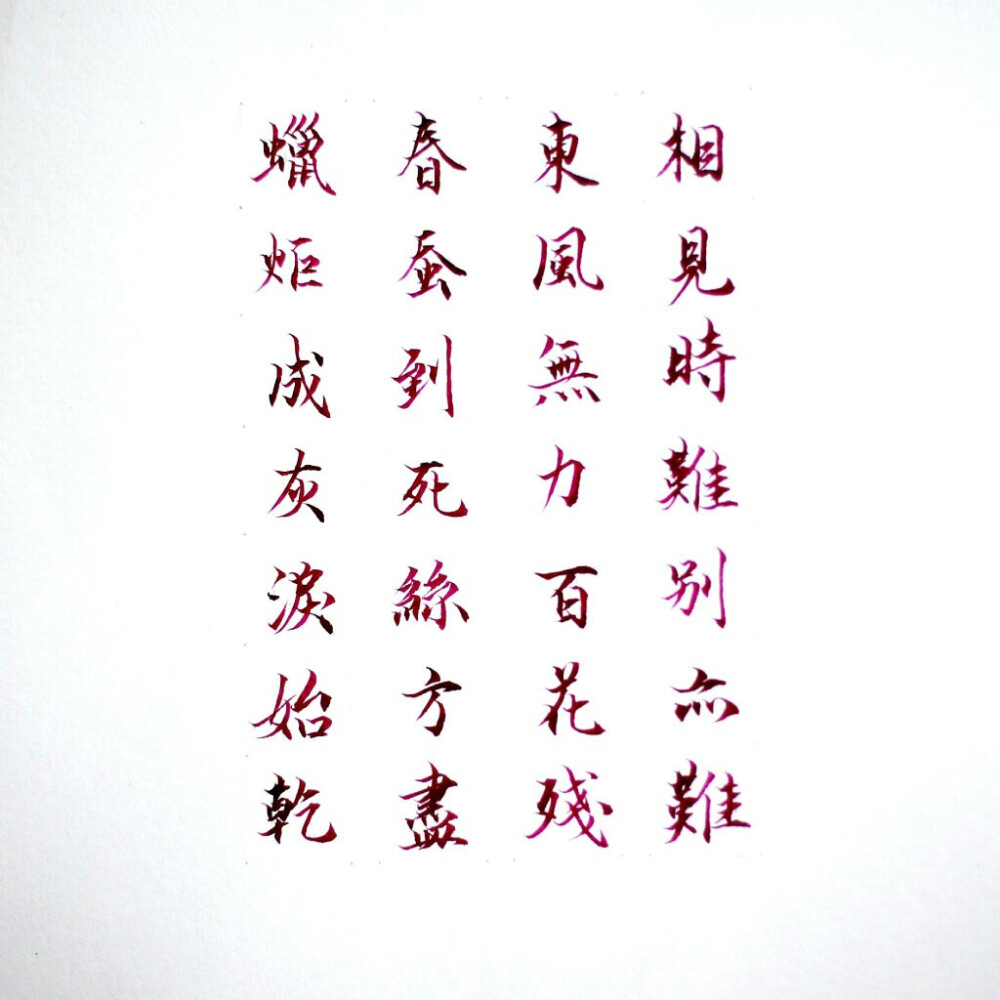 相見時難別亦難
東風無力百花殘
春蚕到死絲方盡
蠟炬成灰淚始乾